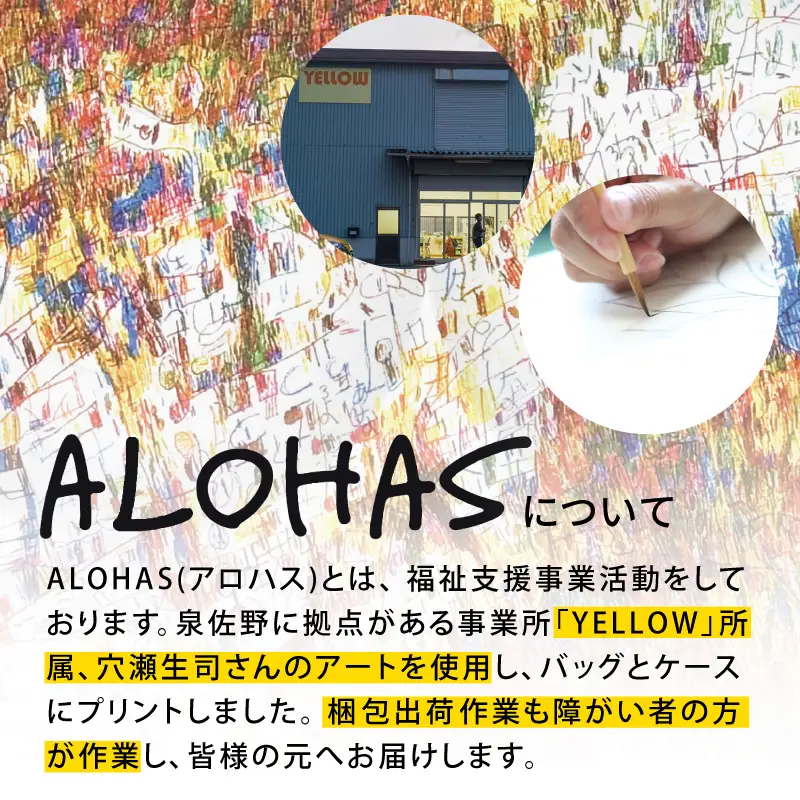 YELLOW
ALOHASについて
ALOHAS(アロハス)とは、福祉支援事業活動をして
おります。泉佐野に拠点がある事業所「YELLOW」所
属、穴瀬生司さんのアートを使用し、バッグとケース
にプリントしました。梱包出荷作業も障がい者の方
が作業し、皆様の元へお届けします。